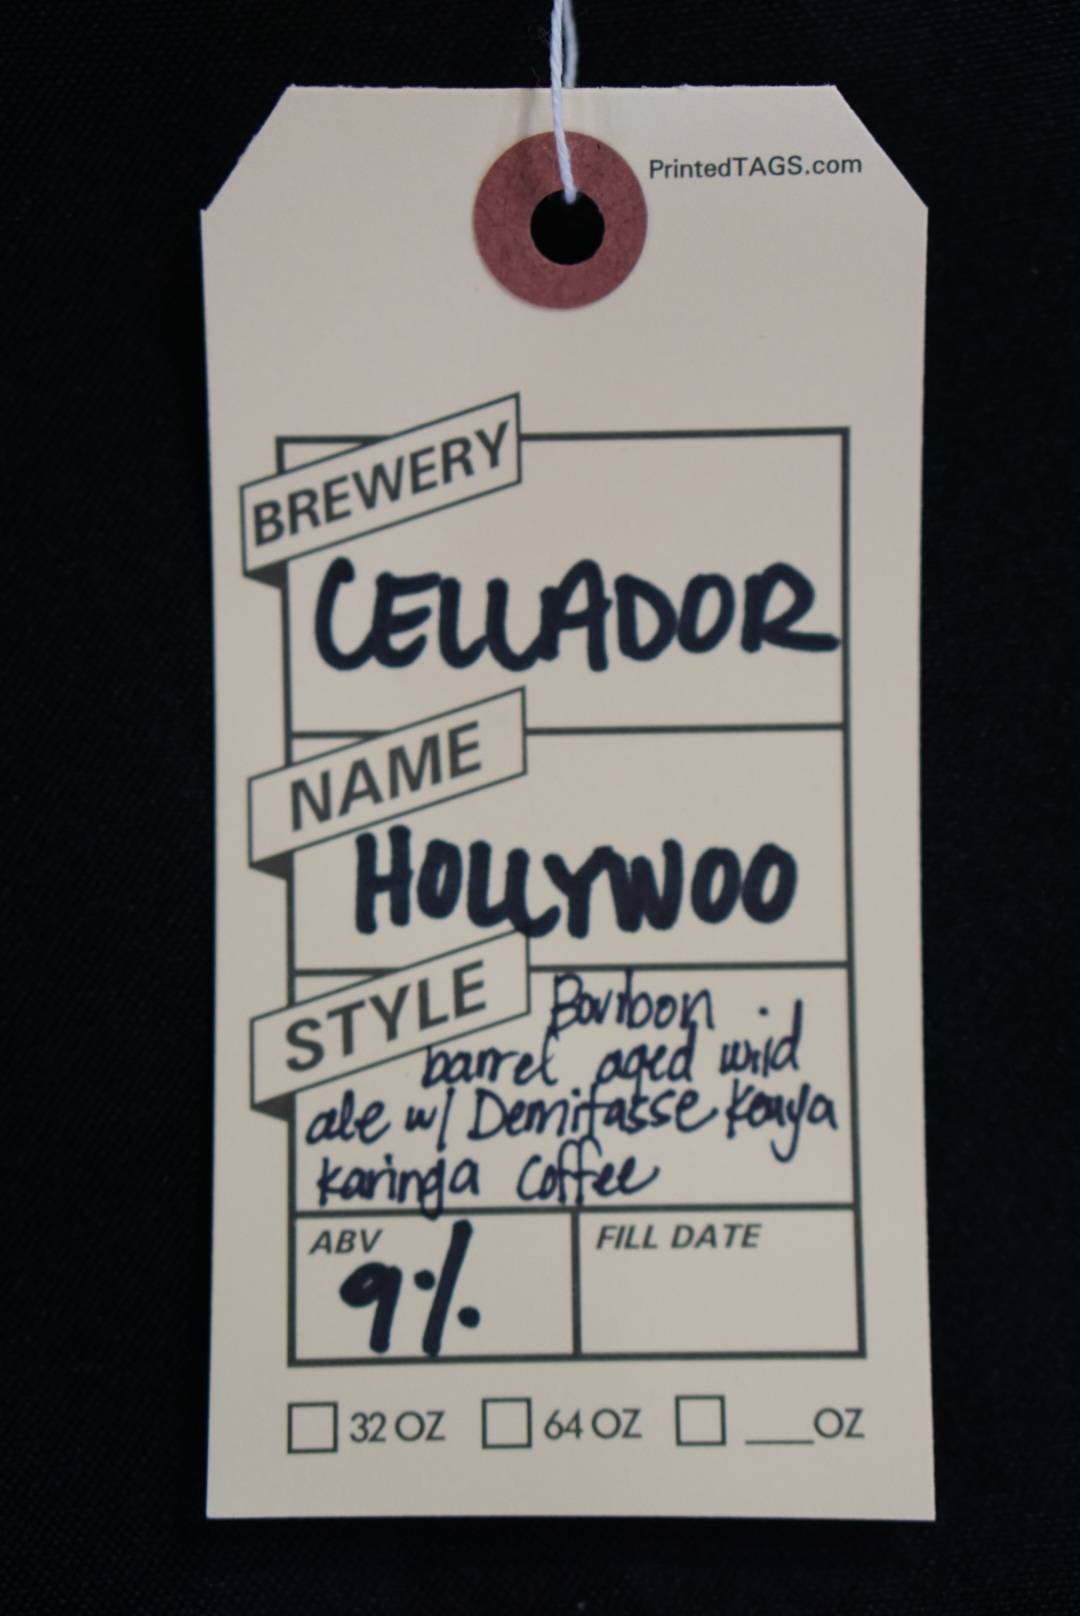 PrintedTAGS.com
BREWERY
CELLADOR
NAME
HOLLYWOO
STYLE
Bourbon
barrel aged wild
ale w/ Demitasse Kenya
Karinga Coffee
ABV
9%
FILL DATE
32 OZ 64 OZ ___OZ